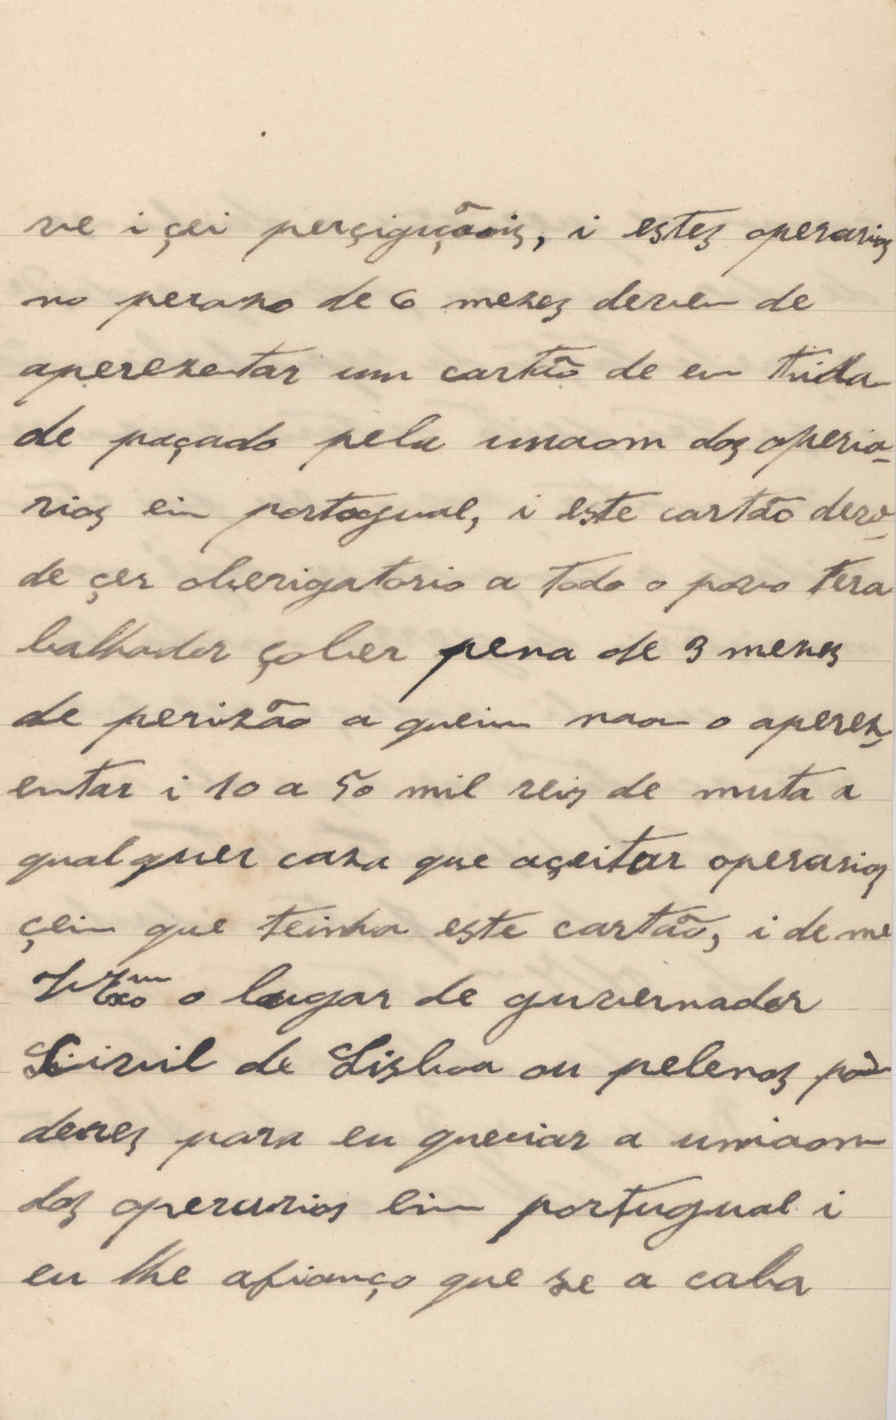 ve i çei perçiguçõis, i estes operarios
no perazo de 6 mezes devem de
aperezentar um cartão de em tida
de paçado pela unaom dos operia-
rios ein portogual, i este cartão deve-
de çer oberigatorio a todo o povo tera
balhador çober pena de 3 mezes
de perizão a queim naom o aperez-
entar i 10 a 50 mil reis de muta a
qualquer caza que açeitar operarios
çeim que teinha este cartão, i de me
o lugar de guvernador
Sivil de Lisboa ou pelenos po
deres para eu queriar a uniaom
dos operarios eim portugual i
eu lhe afianço que se a caba